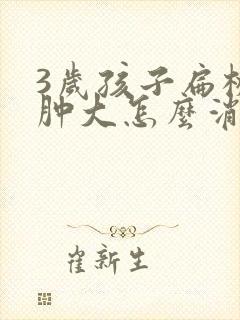 3歲孩子扁桃
肿大怎麼消
崔新生